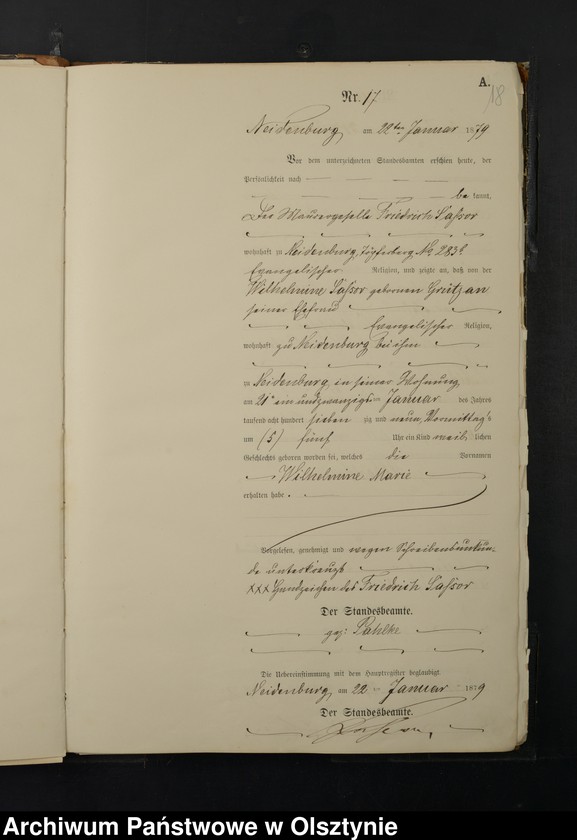 A.
18
Nr. 17
Neidenburg, am 22ten Januar 1879
Vor dem unterzeichneten Standesbeamten erschien heute, der
Persönlichkeit nach
be kannt,
der Maurergeselle Friedrich Sassor
wohnhaft zu Neidenburg, No 283
Evangelischer Religion, und zeigte an, daß von der
Wilhelmine Sassor gebornen
seiner Ehefrau
Evangelischer Religion,
wohnhaft zu Neidenburg bei ihm
zu Neidenburg in seiner Wohnung
am 21 ein und zwanzigsten Januar des Jahres
tausend acht hundert sieben zig und neun, Vormittags
um (5) fünf Uhr ein Kind weib lichen
Geschlechts geboren worden sei, welches die Vornamen
Wilhelmine Marie
erhalten habe.
Vorgelesen, genehmigt und wegen Schreibensunkun-
de unterkreuzt
XXX Handzeichen des Friedrich Sassor
Der Standesbeamte.
gez: Pahlke
Die Uebereinstimmung mit dem Hauptregister beglaubigt
Neidenburg, am 22 Januar 1879
Der Standesbeamte.
Archiwum Państwowe w Olsztynie